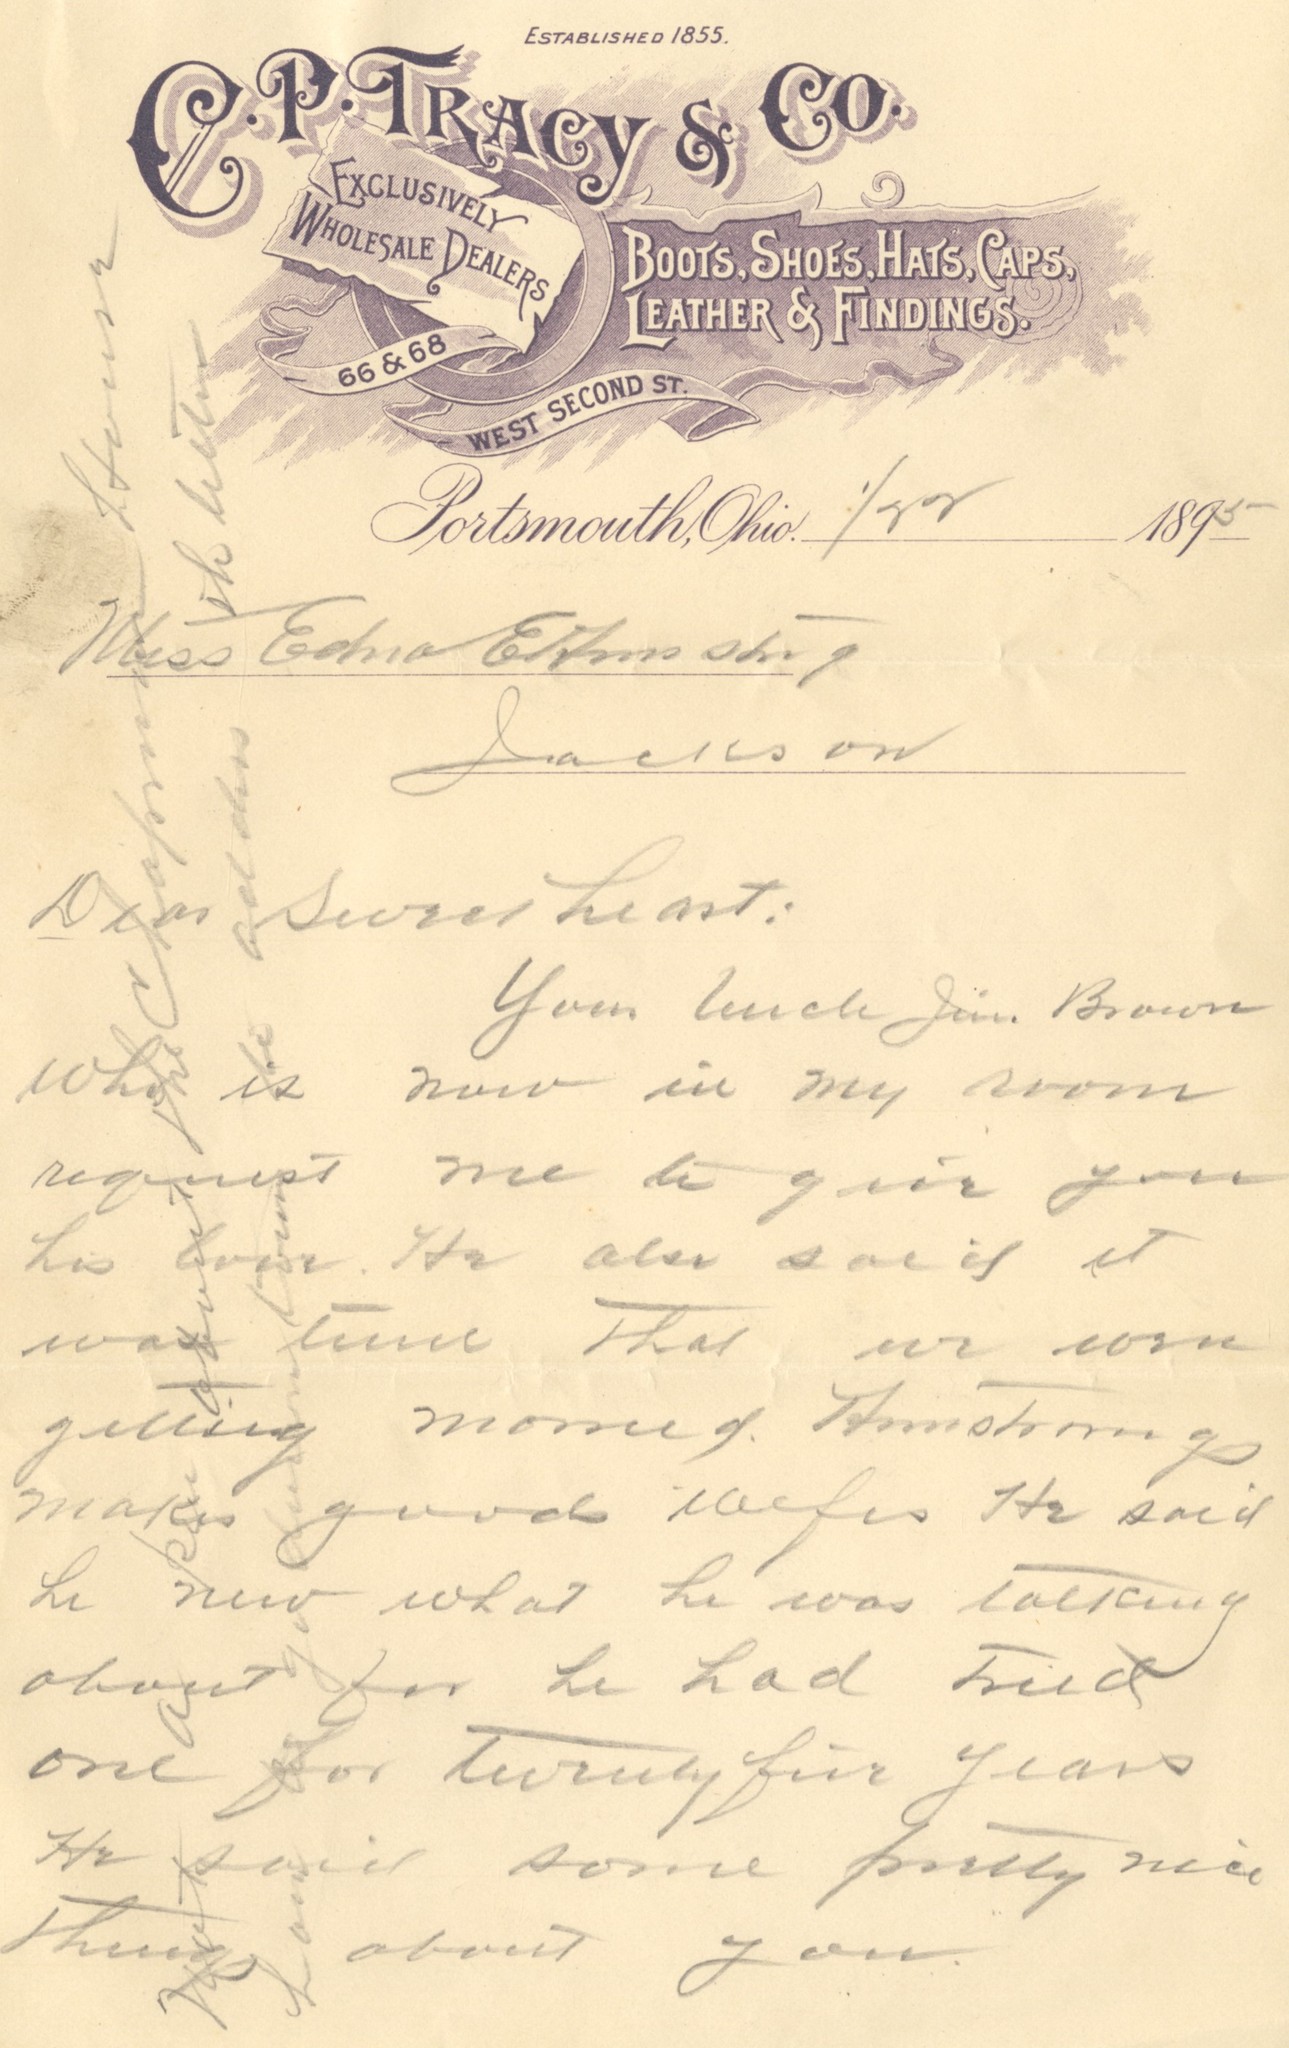 ESTABLISHED 1855.
C. P. TRACY & CO.
EXCLUSIVELY
WHOLESALE DEALERS
BOOTS, SHOES, HATS, CAPS,
LEATHER & FINDINGS.
66 & 68
WEST SECOND ST.
Portsmouth, Ohio. 1/22 1895
Miss Edna E Armstrong
Jackson
Dear Sweetheart:
Your Uncle Jim Brown
who is now in my room
request me to give you
his love. He also said it
was time that we were
getting married. Armstrongs
makes good wifes He said
he new what he was talking
about for he had tried
one for twenty five years
He said some pretty nice
things about you.
Put a pen about the Chapman House
address